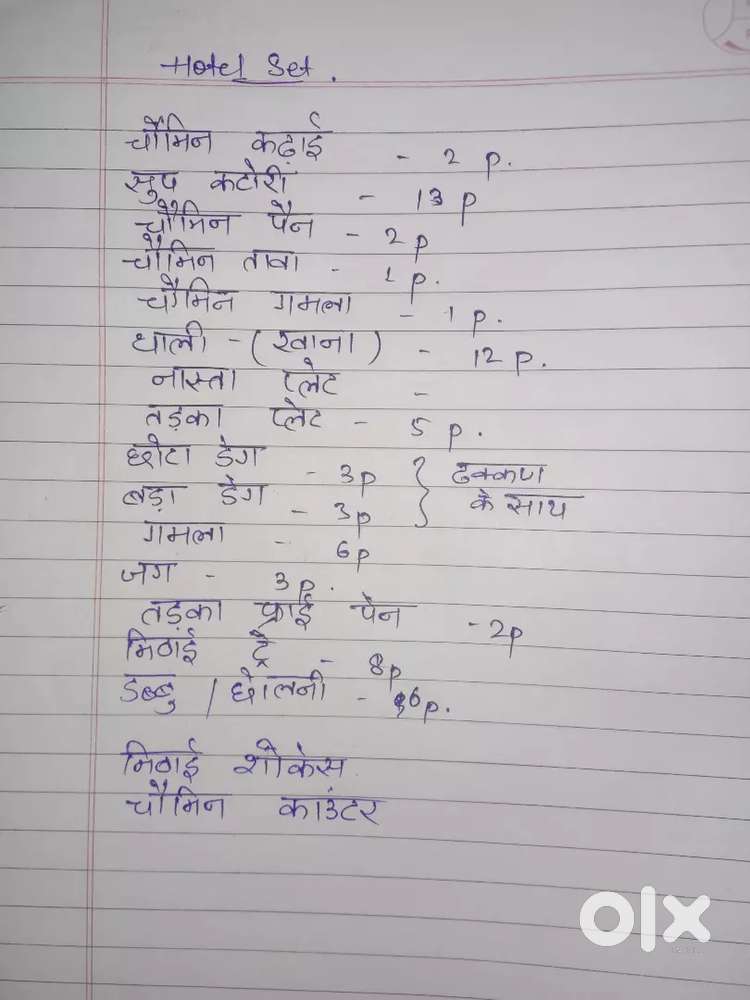 Hotel Set.
चौमिन कढ़ाई - 2 p.
सुप कटोरी - 13 p
चौमिन पैन - 2p
चौमिन तावा - 1 p.
चौमिन गमला - 1 p.
थाली - (खाना) - 12 p.
नास्ता प्लेट -
तड़का प्लेट - 5 p.
छोटा डेग - 3p } ढक्कण
बड़ा डेग - 3p } के साथ
गमला - 6p
जग - 3p.
तड़का फ्राई पैन - 2p
मिठाई ट्रै - 8p
डब्बु / छोलनी - 6p.
मिठाई शौकेस
चौमिन काउंटर
olx